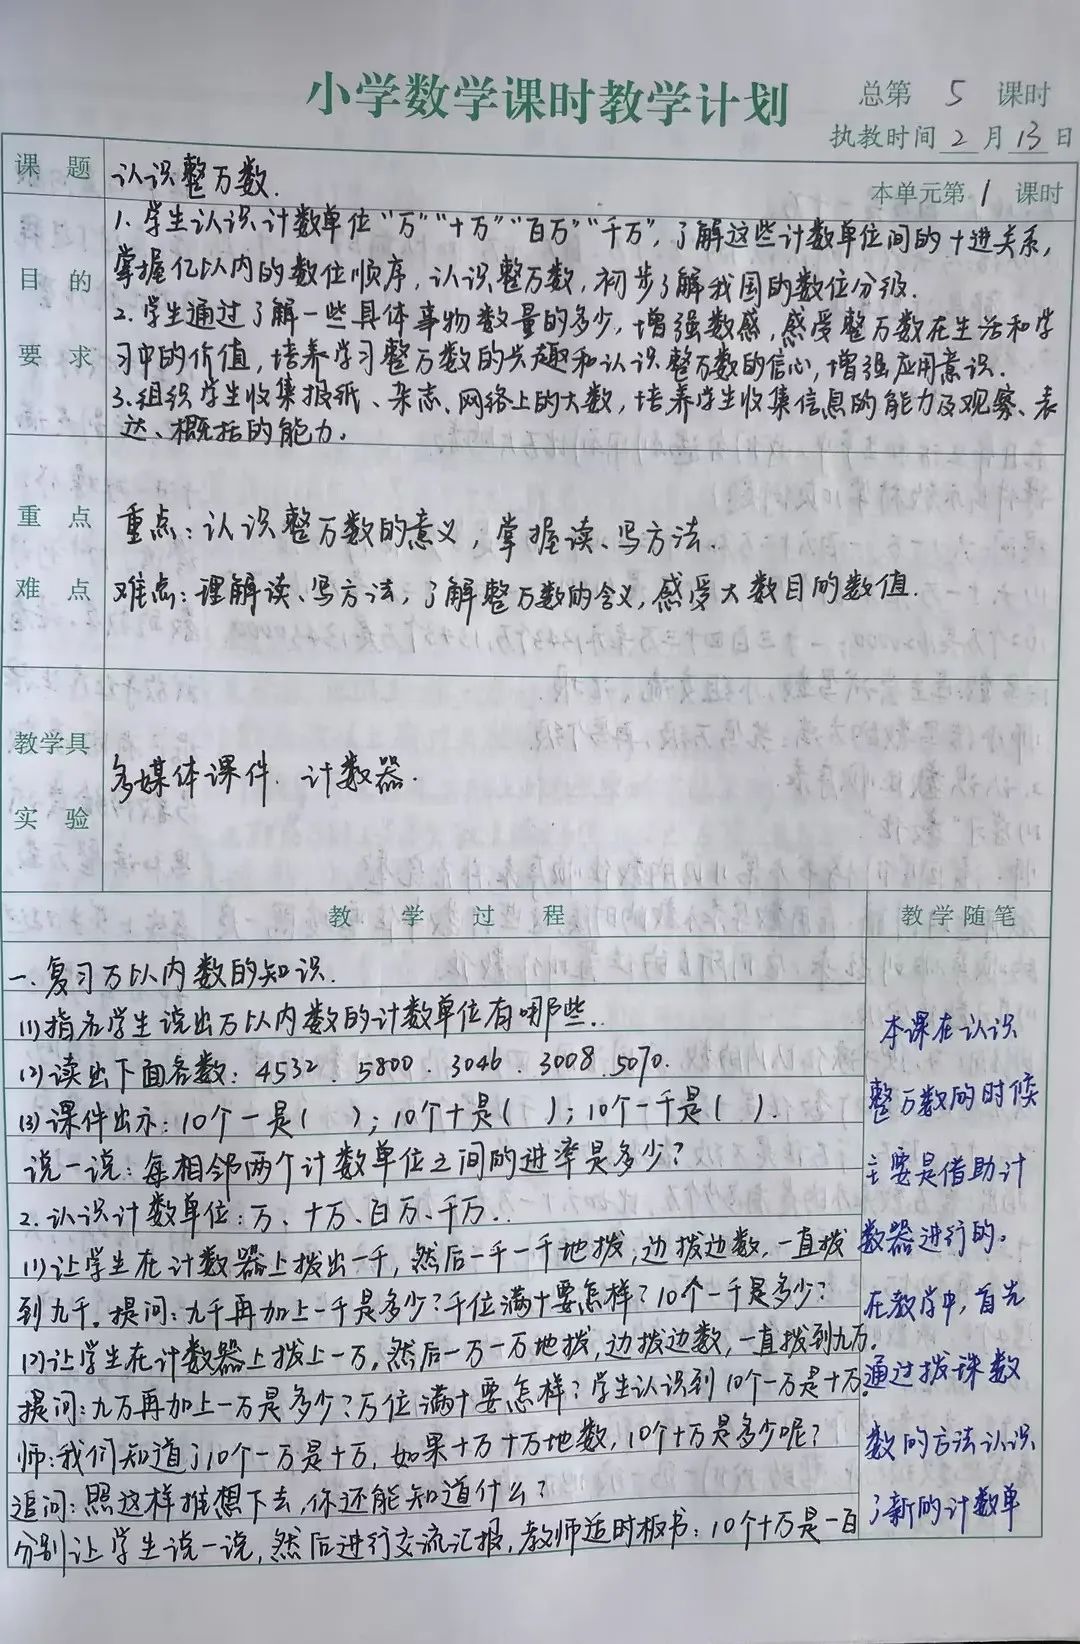 小学数学课时教学计划
总第 5 课时
执教时间 2 月 13 日
课题 认识整万数.
本单元第 1 课时
目的要求
1. 学生认识计数单位“万”“十万”“百万”“千万”,了解这些计数单位间的十进关系,
掌握亿以内的数位顺序,认识整万数,初步了解我国的数位分级.
2. 学生通过了解一些具体事物数量的多少,增强数感,感受整万数在生活和学
习中的价值,培养学习整万数的兴趣和认识整万数的信心,增强应用意识.
3. 组织学生收集报纸、杂志、网络上的大数,培养学生收集信息的能力及观察、表
达、概括的能力。
重点
难点
重点:认识整万数的意义,掌握读、写方法.
难点:理解读、写方法,了解整万数的含义,感受大数目的数值.
教学具
实验
多媒体课件. 计数器.
教学过程
一. 复习万以内数的知识.
(1)指名学生说出万以内数的计数单位有哪些..
(2)读出下面各数:4532、5800、3046、3008、5070.
(3)课件出示:10个一是( );10个十是( );10个一千是( ).
说一说:每相邻两个计数单位之间的进率是多少?
2. 认识计数单位:万、十万、百万、千万..
(1)让学生在计数器上拨出一千,然后一千一千地拨,边拨边数,一直拨
到九千。提问:九千再加上一千是多少?千位满十要怎样?10个一千是多少?
(2)让学生在计数器上拨上一万,然后一万一万地拨,边拨边数,一直拨到九万.
提问:九万再加上一万是多少?万位满十要怎样?学生认识到10个一万是十万.
师:我们知道了10个一万是十万,如果十万十万地数,10个十万是多少呢?
追问:照这样推想下去,你还能知道什么?
分别让学生说一说,然后进行交流汇报,教师适时板书:10个十万是一百
教学随笔
本课在认识
整万数的时候
主要是借助计
数器进行的。
在教学中,首先
通过拨珠数
数的方法认识
了新的计数单